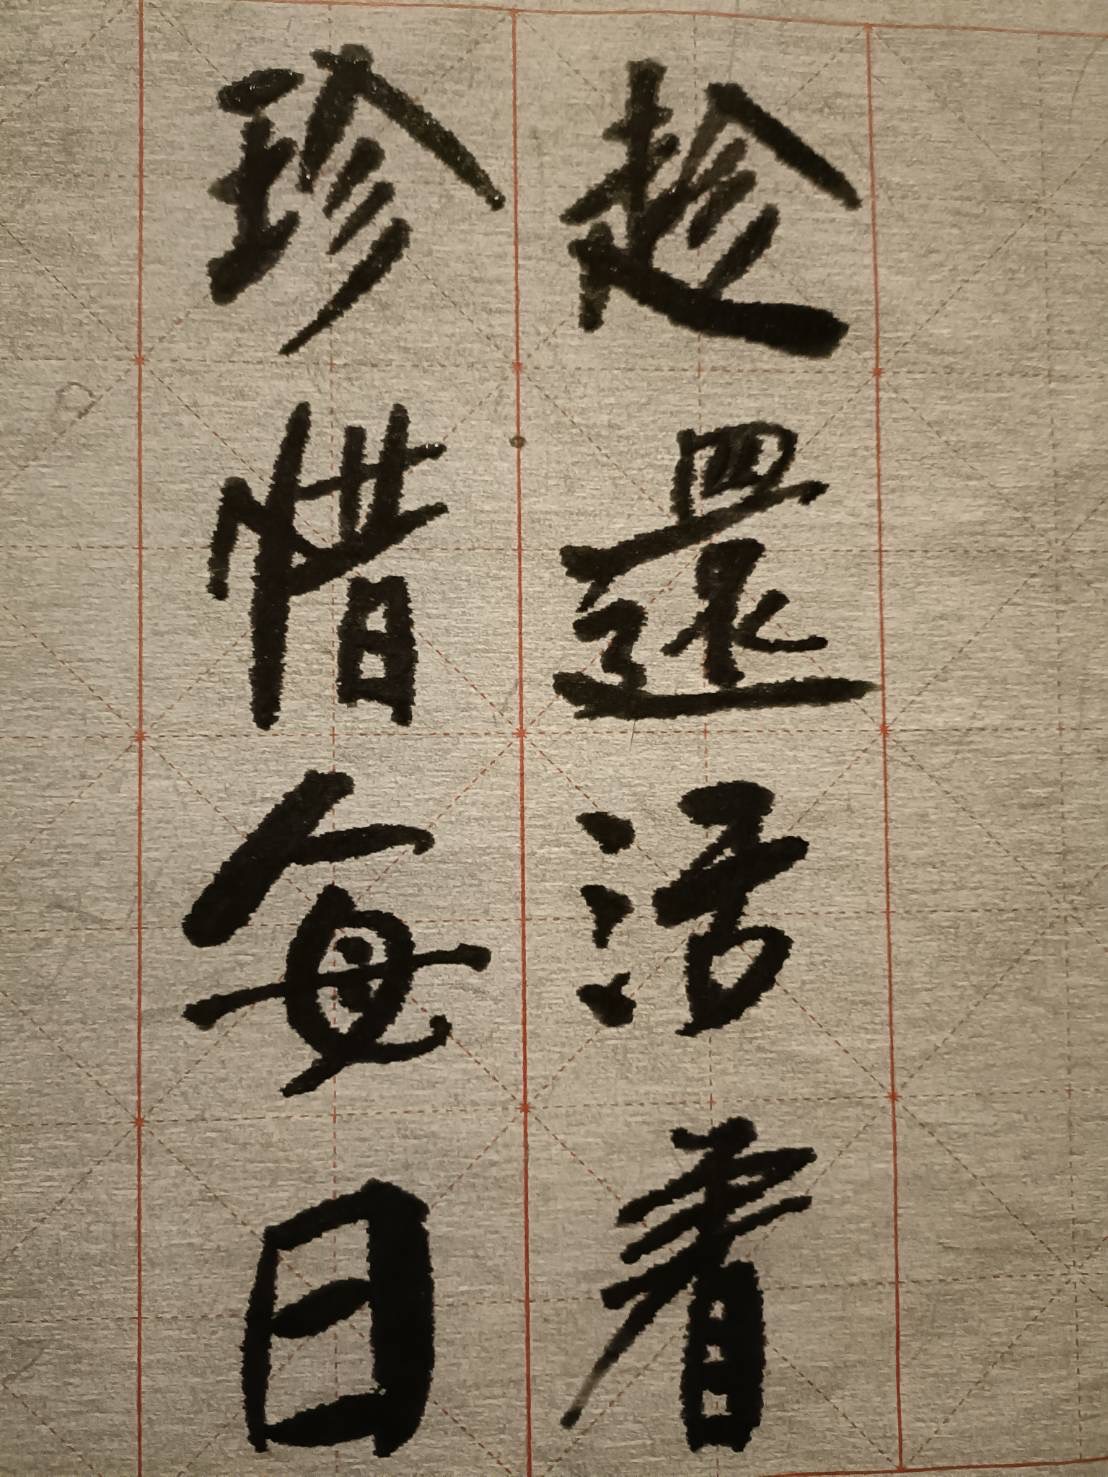 趁還活看
珍惜每日